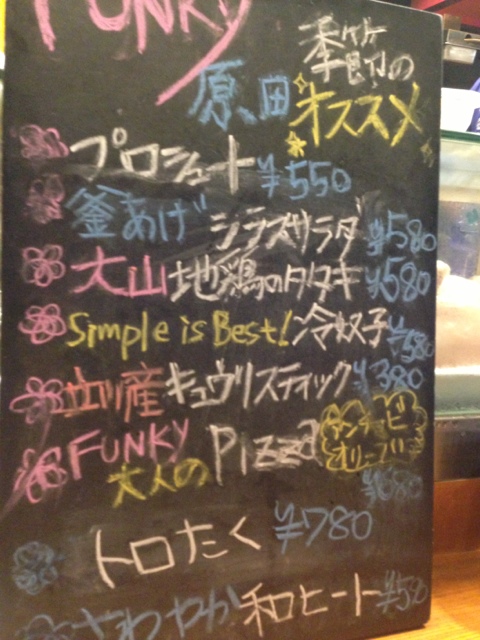 FUNKY
季節の
原田 オススメ
プロシュート ¥550
釜あげ シラスサラダ ¥580
大山地鶏のタタキ ¥580
Simple is Best! 冷奴子
立川産キュウリスティック ¥380
FUNKY
大人の Pizza アンチョビ
オリーブ
¥680
トロたく ¥780
さわやか 和ヒート